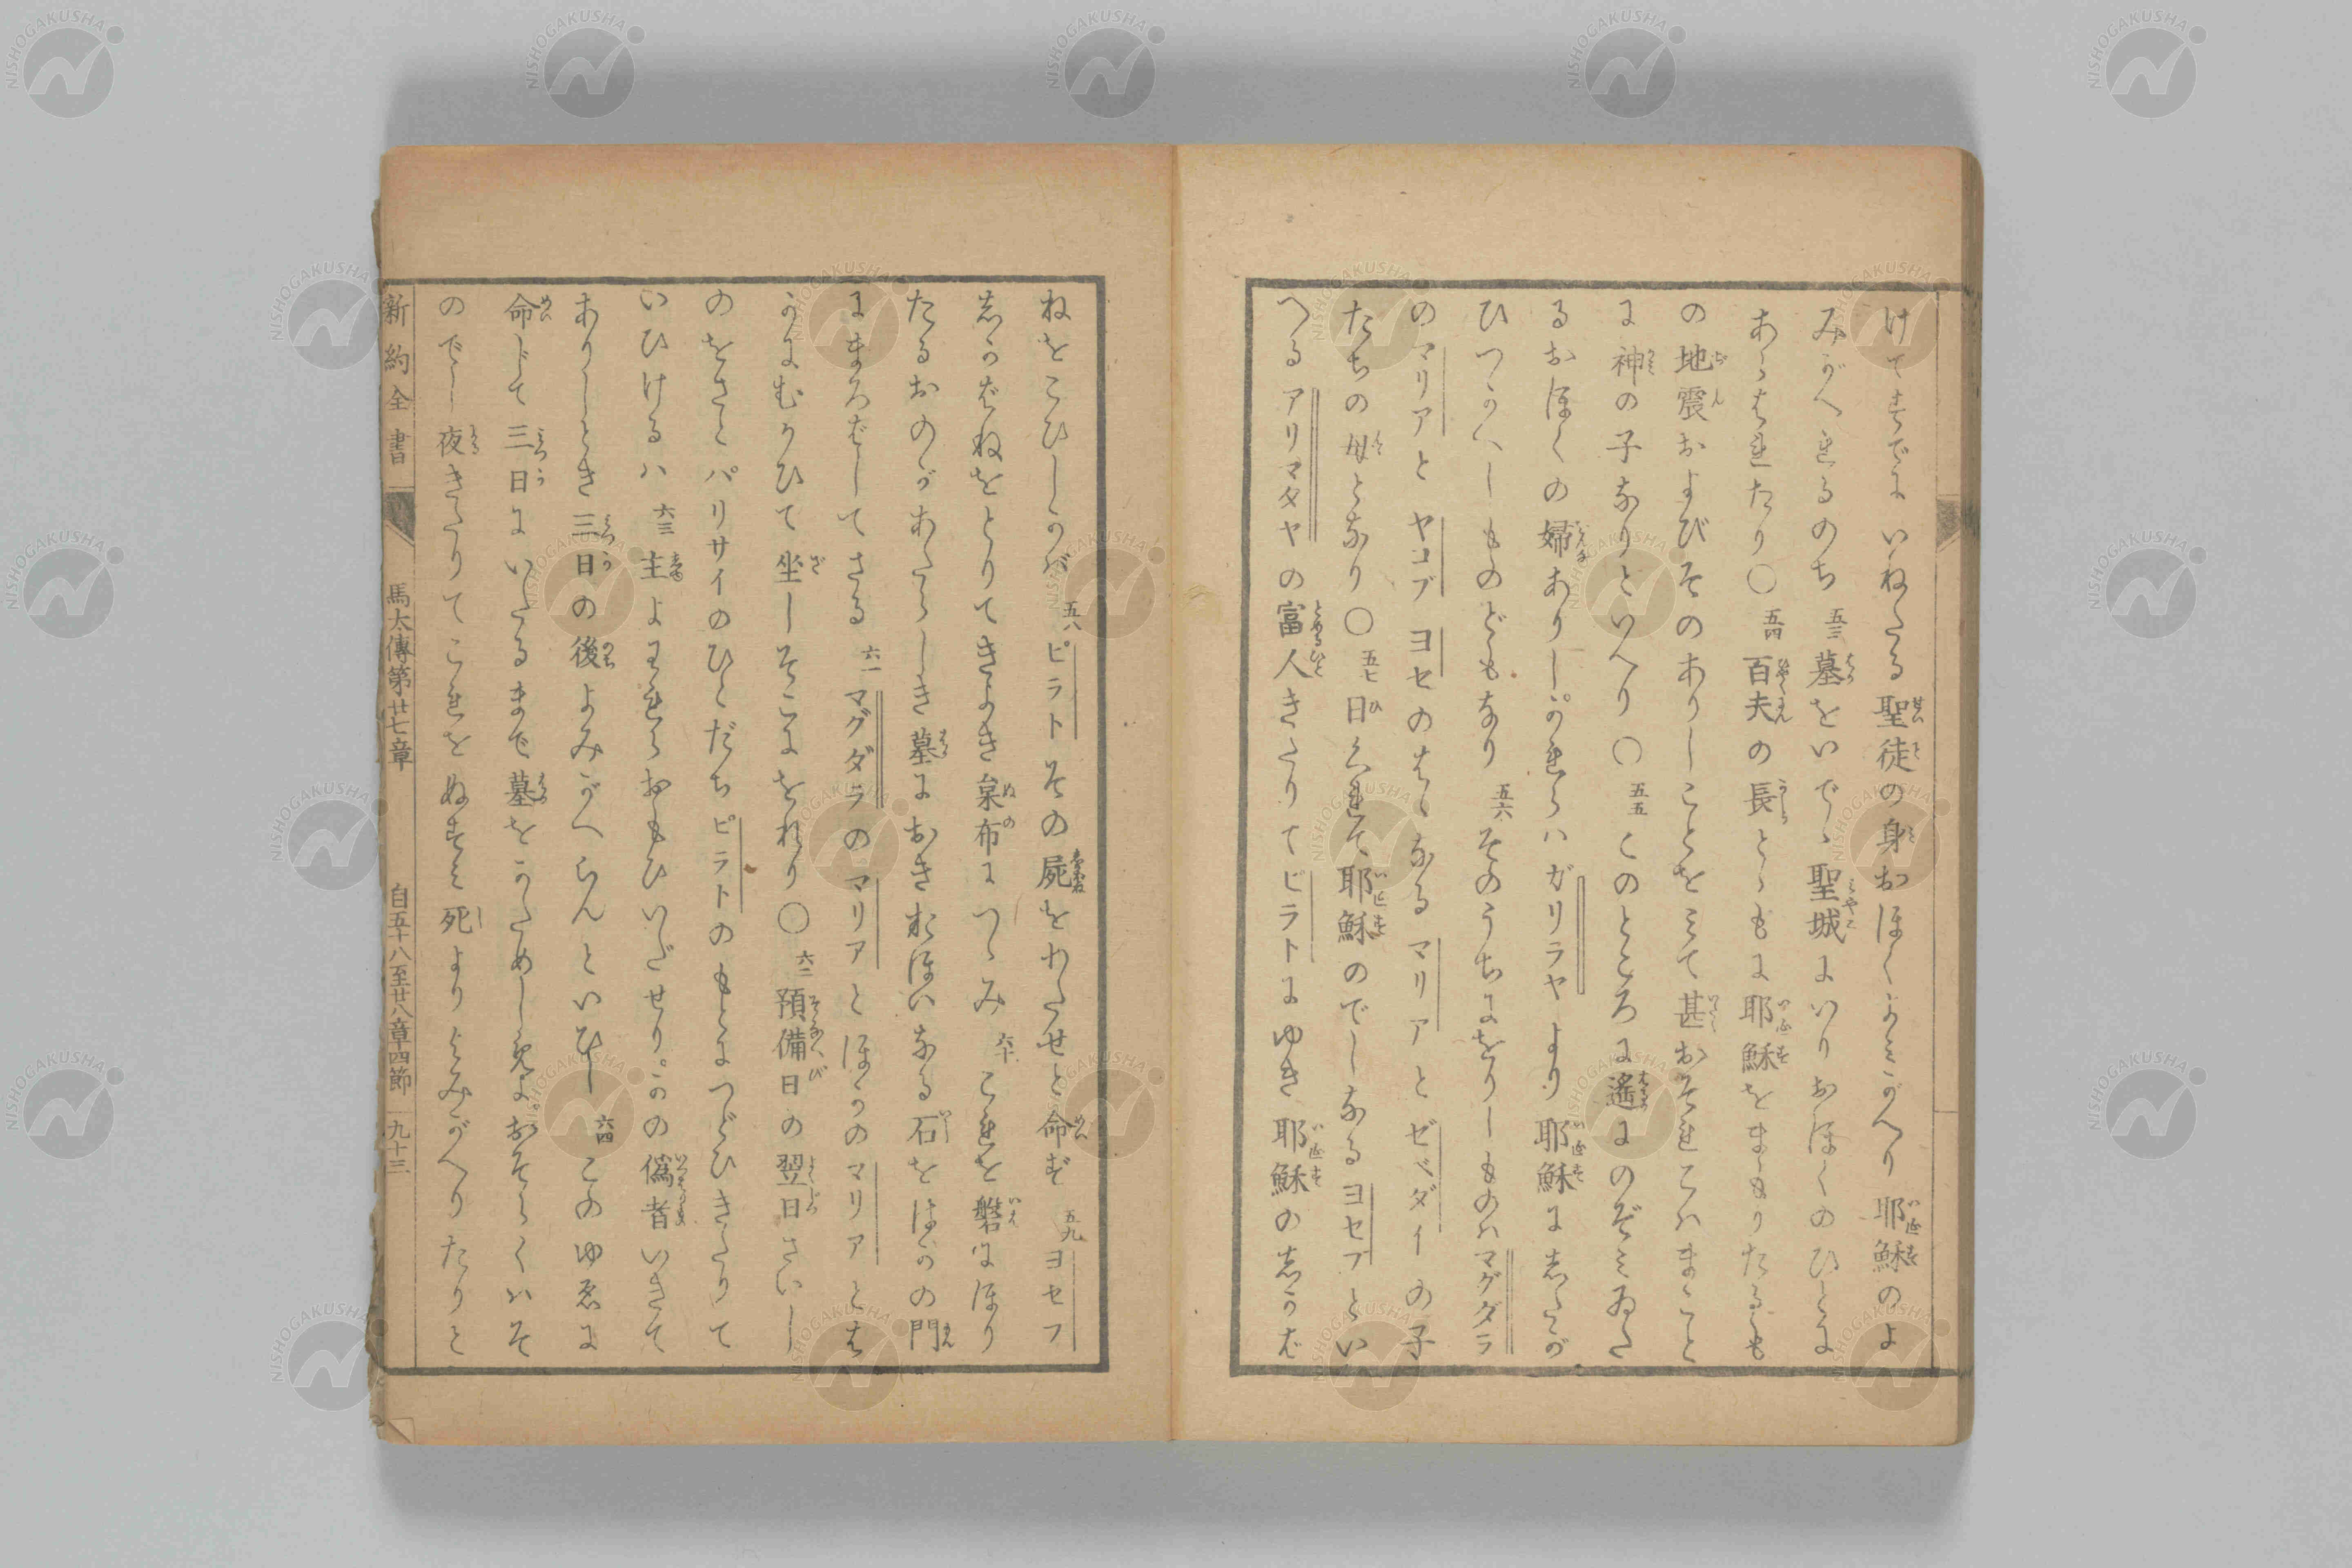 けてすでにいねたる聖徒の身おほくよみがへり耶穌のよ
みがへれるのち五三墓をいでゝ聖城にいりおほくのひとに
あらはれたり〇五四百夫の長とゝもに耶穌をまもりたるも
の地震およびそのありしことをみて甚おそれこハまこと
に神の子なりといへり〇五五このところに遙にのぞみゐた
るおほくの婦ありし。かれらハガリラヤより耶穌にしたが
ひつかへしものどもなり五六そのうちにをりしものハマグダラ
のマリアとヤコブヨセのはゝなるマリアとゼベダイの子
たちの母となり〇五七日くれて耶穌のでしなるヨセフとい
へるアリマタヤの富人きたりてピラトにゆき耶穌のしかば
ねをこひしかバ五八ピラトその屍をわたせと命ず五九ヨセフ
しかばねをとりてきよき枲布につゝみ六十これを磐にほり
たるおのがあたらしき墓におきおほいなる石をはかの門
にまろばしてさる六一マグダラのマリアとほかのマリアとは
かにむかひて坐しそこにをれり〇六二預備日の翌日さいし
のをさとパリサイのひとだちピラトのもとにつどひきたりて
いひけるハ六三主よわれらおもひいだせり。かの偽者いきて
ありしとき三日の後よみがへらんといひし六四このゆゑに
命じて三日にいたるまで墓をかためしめよ。おそらくハそ
のでし夜きたりてこれをぬすみ死よりよみがへりたりと
新約全書　馬太傳第廿七章　自五十八至廿八章四節　九十三
NISHOGAKUSHA